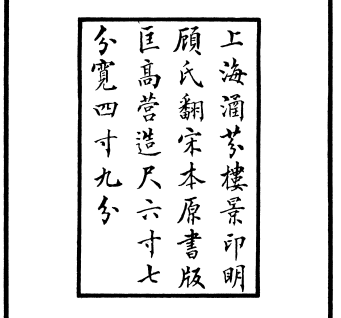 上海涵芬樓景印明
顧氏翻宋本原書版
匡高营造尺六寸七
分寬四寸九分